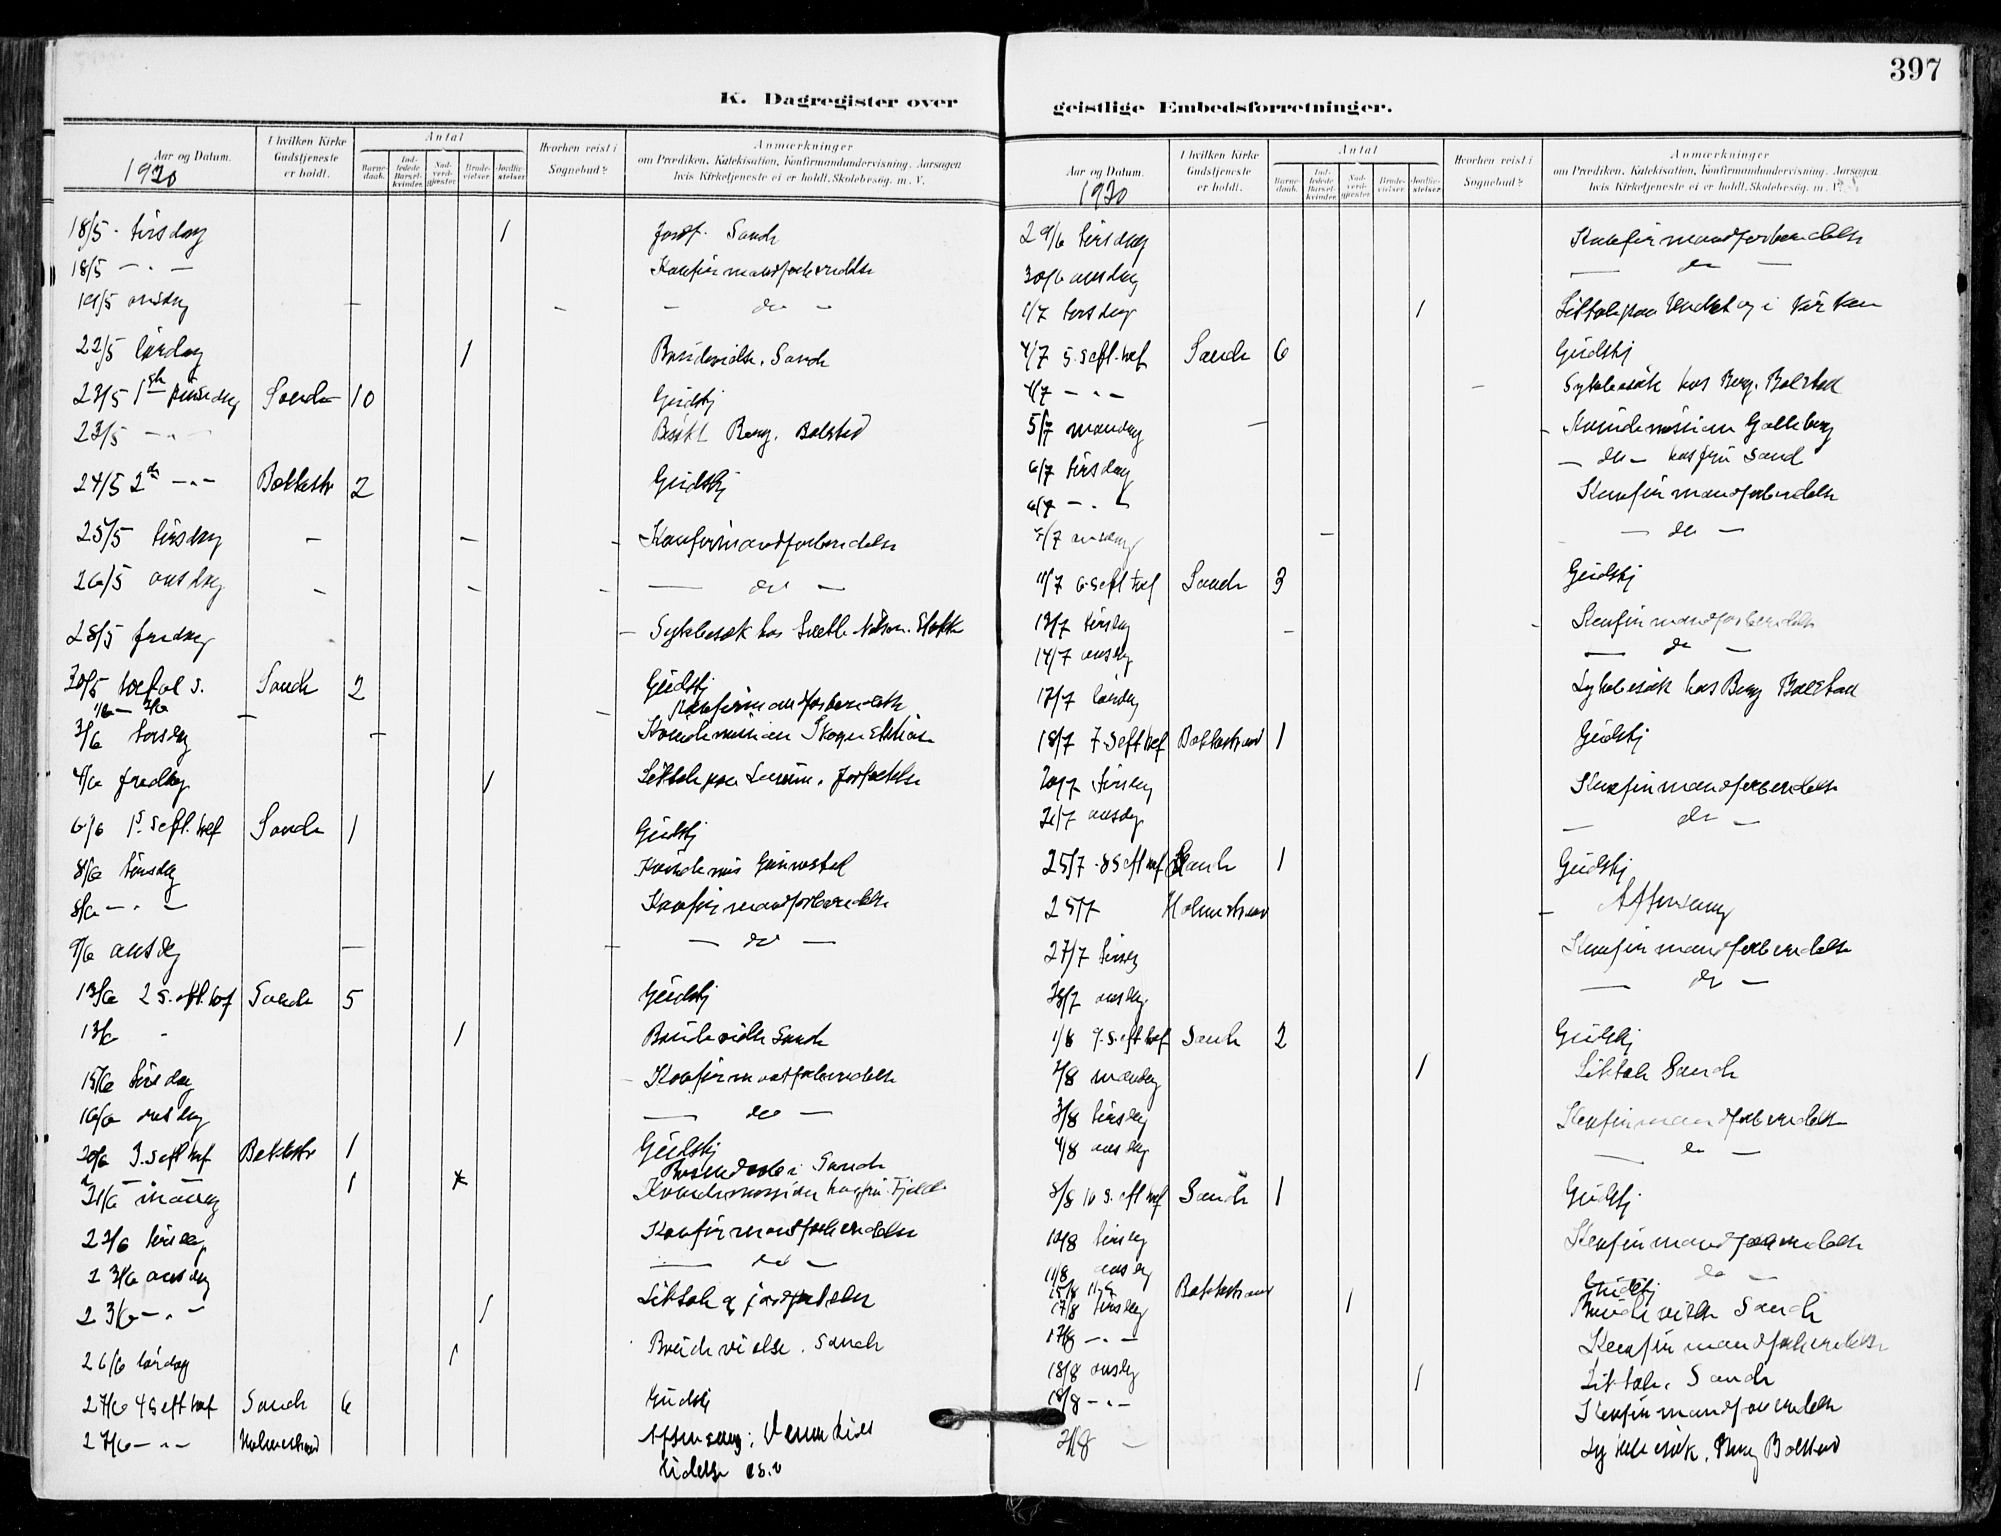 397
K. Dagregister over
geistlige Embedsforretninger.
Aar og Datum.
I hvilken Kirke Gudstjeneste er holdt.
Antal
Barne-daab.
Ind-ledede Barsel-kvinder.
Nad-verd-gjæster.
Brude-vielser.
Jordfæ-stelser.
Hvorhen reist i Sognebud?
Anmærkninger
om Prædiken, Katekisation, Konfirmandundervisning, Aarsagen
hvis Kirketjeneste ei er holdt, Skolebesøg, m. V.
1920
18/5 - tirsdag 1 Jordf. Sande
18/5 — " — Konfirmandforberedelse
19/5 onsdag — do —
22/5 lørdag 1 Brudevielse. Sande
23/5 1ste pinsedag Sande 10 Gudstj
23/5 — " — Besøkt Berg. Bolstad
24/5 2den — " — Bakkestr 2 Gudstj
25/5 tirsdag Konfirmandforberedelse
26/5 onsdag — do —
28/5 fredag Sykebesøk hos
30/5 trefol s. Sande 2 Gudstj
Konfirmandforberedelse
3/6 torsdag Kvindemission
4/6 fredag 1 Liktale paa
6/6 1 s. eft. tref Sande 1 Gudstj
8/6 tirsdag Kvindemis
8/6 — " — Konfirmandforberedelse
9/6 onsdag — do —
13/6 2 s. eft. tref Sande 5 Gudstj
13/6 1 Brudevielse Sande
15/6 tirsdag Konfirmandforberedelse
16/6 onsdag — do —
20/6 3. s eft tref Bakkestr 1 Gudstj
Sande
21/6 mandag 1 Kvindemission hos fru
22/6 tirsdag Konfirmandforberedelse
23/6 onsdag — do —
23/6 — " — 1 Liktale og jordfestelse
26/6 lørdag 1 Brudevielse. Sande
27/6 4 s eft tref Sande 6 Gudstj
27/6 — " — Holmestrand Aftensang:
Aar og Datum.
I hvilken Kirke Gudstjeneste er holdt.
Antal
Barne-daab.
Ind-ledede Barsel-kvinder.
Nad-verd-gjæster.
Brude-vielser.
Jordfæ-stelser.
Hvorhen reist i Sognebud?
Anmærkninger
om Prædiken, Katekisation, Konfirmandundervisning, Aarsagen
hvis Kirketjeneste ei er holdt, Skolebesøg, m. V.
1920
29/6 tirsdag Konfirmandforberedelse
30/6 onsdag — do —
1/7 torsdag 1 Liktale paa og i kirken
4/7 5. s eft. tref Sande 6 Gudstj
4/7 — " — Sykebesøk hos Berg. Bolstad
5/7 mandag Kvindemission Galleberg
6/7 tirsdag — do — hos fru Sand
6/7 — " — Konfirmandforberedelse
7/7 onsdag — do —
11/7 6. s eft tref Sande 3 Gudstj
13/7 tirsdag Konfirmandforberedelse
14/7 onsdag — do —
17/7 lørdag Sykebesøk hos Berg Bolstad
18/7 7. s eft tref Bakkestrand 1 Gudstj
20/7 tirsdag Konfirmandforberedelse
21/7 onsdag — do —
25/7 8 s eft tref Sande 1 Gudstj
25/7 Holmestrand Aftensang
27/7 tirsdag Konfirmandforberedelse
28/7 onsdag — do —
1/8 9. s. eft tref Sande 2 Gudstj
2/8 mandag 1 Liktale Sande
3/8 tirsdag Konfirmandforberedelse
4/8 onsdag — do —
8/8 10 s. eft tref Sande 1 Gudstj
10/8 tirsdag Konfirmandforberedelse
11/8 onsdag — do —
15/8 11 s. Bakkestrand Gudstj
17/8 tirsdag 1 Brudevielse Sande
17/8 — " — Konfirmandforberedelse
18/8 onsdag 1 Liktale. Sande
18/8 — " — Konfirmandforberedelse
21/8 — Sykebesøk. Berg Bolstad